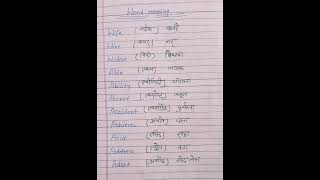 Word meaning
Wife (वाईफ) पत्नी
Wine
Widow (विडो) विधवा
Able (एबल) लायक
Ability (एबिलिटी) योग्यता
Accept (एक्सेप्ट) कबूल
Accident (एक्सीडेंट) दुर्घटना
Achieve (अचीव) पाना
Acid (एसिड)
Address (एड्रेस) पता
Adopt (अडॉप्ट) गोद लेना